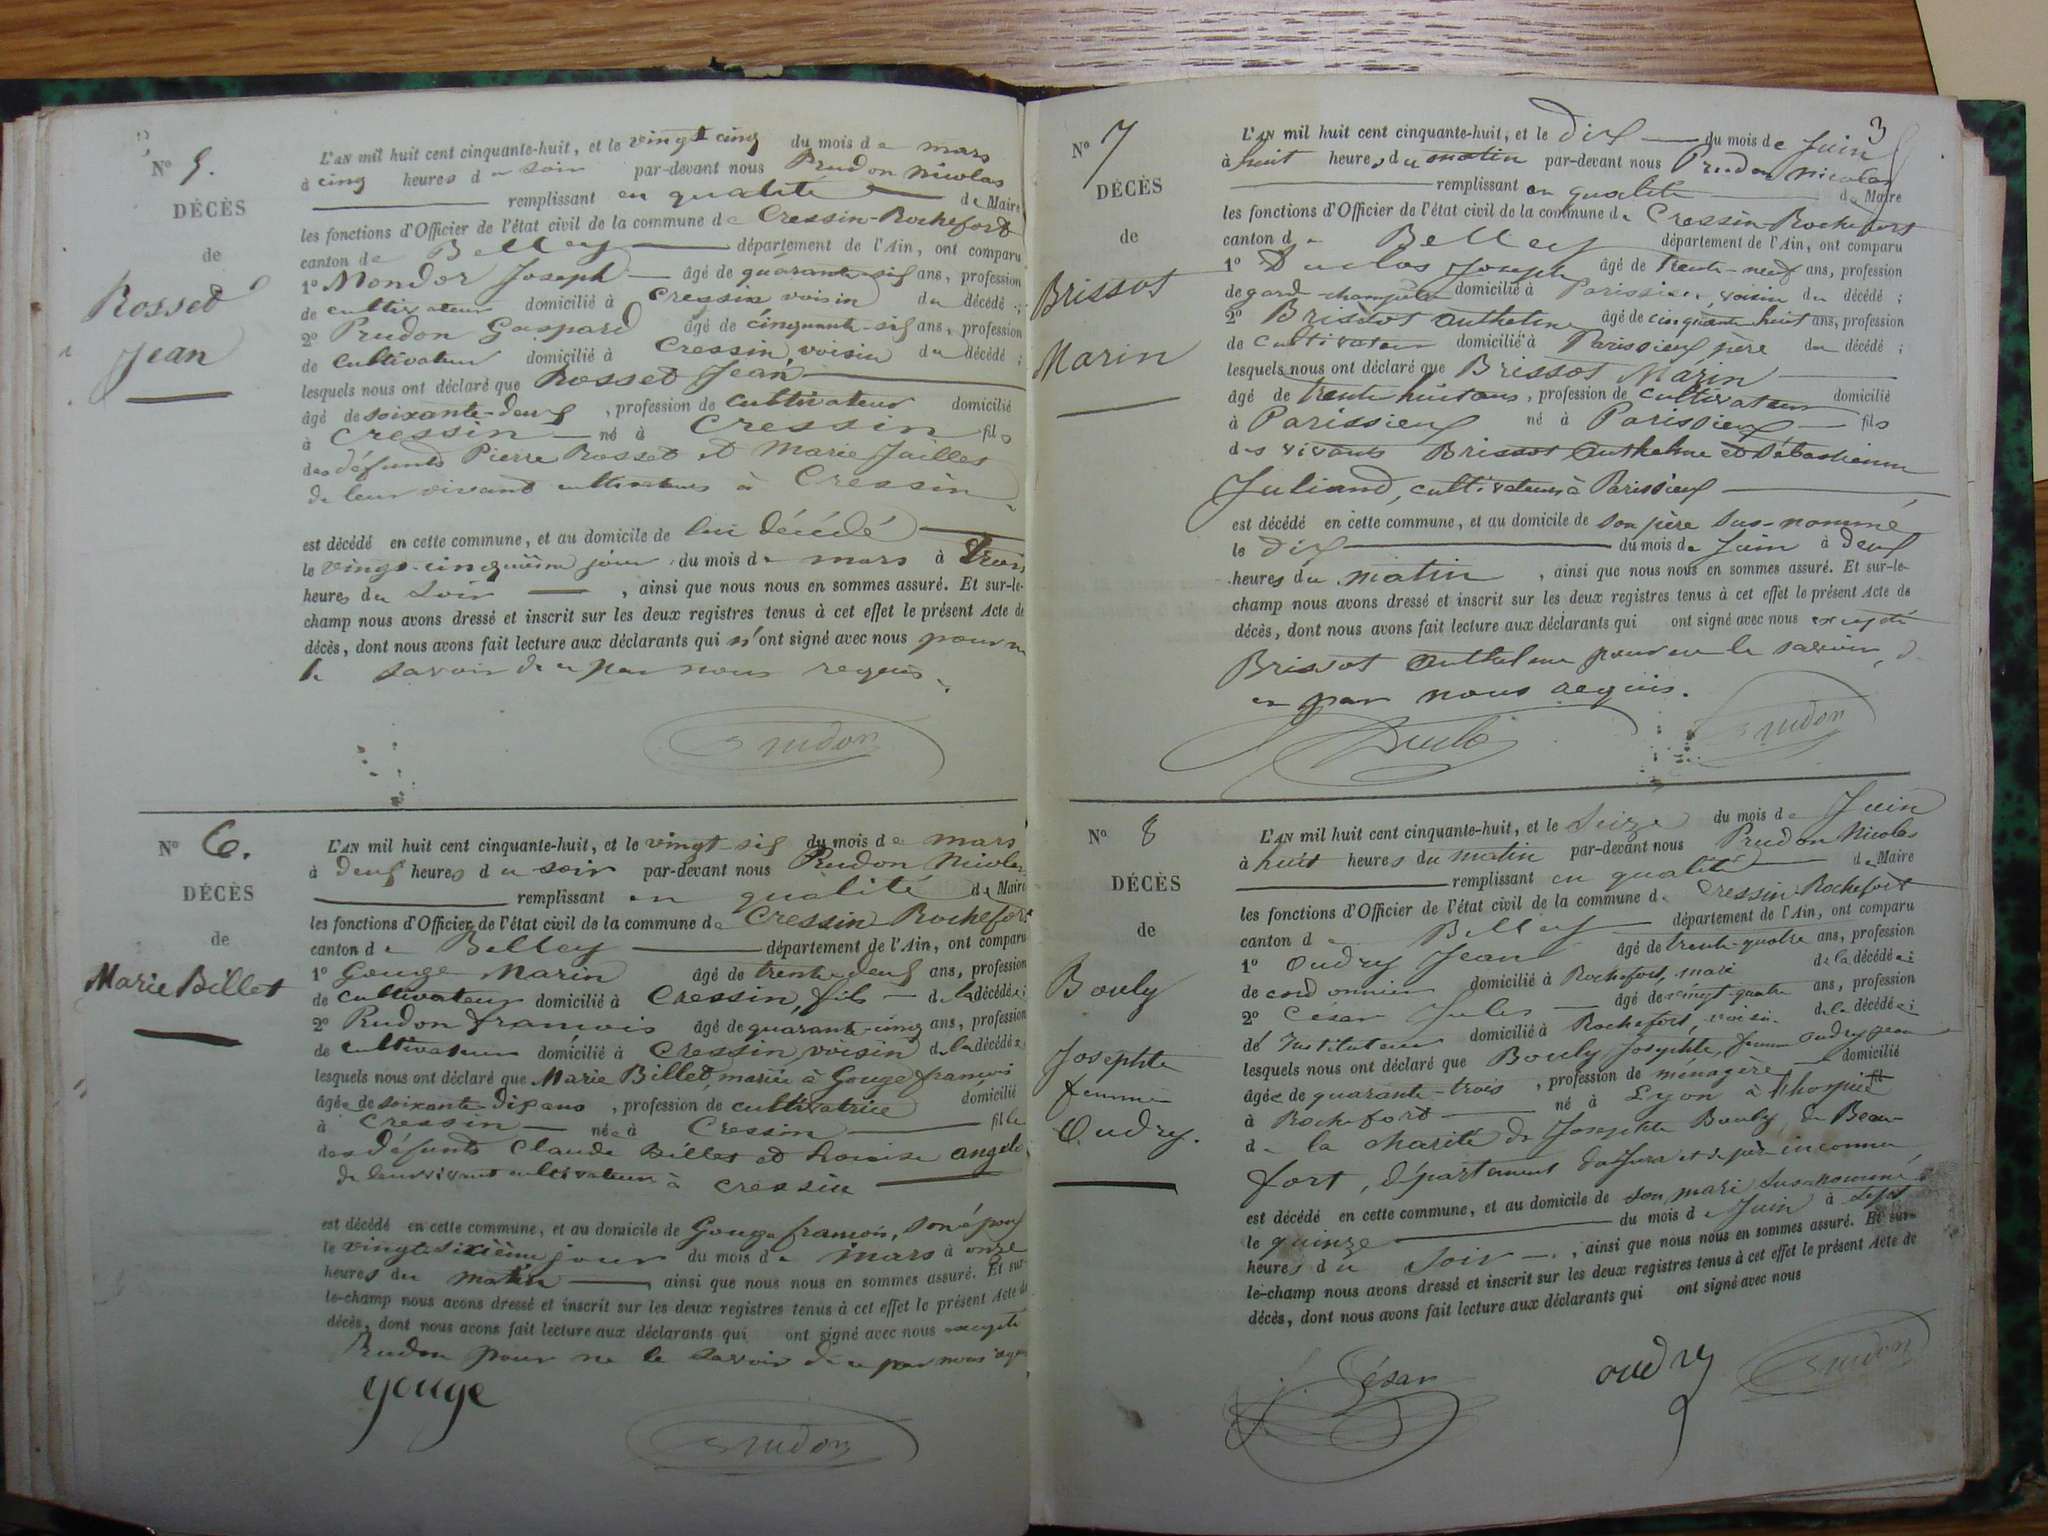 N° 5.
DÉCÈS
de
Rosset
Jean
L'AN mil huit cent cinquante-huit, et le vingt cinq du mois de mars
à cinq heures du soir par-devant nous Prudon Nicolas
remplissant en qualité de Maire
les fonctions d'Officier de l'état civil de la commune de Cressin-Rochefort
canton de Belley département de l'Ain, ont comparu
1° Mondor Joseph âgé de quarante-six ans, profession
de cultivateur domicilié à Cressin voisin du décédé ;
2° Prudon Gaspard âgé de cinquante-six ans, profession
de cultivateur domicilié à Cressin, voisin du décédé ;
lesquels nous ont déclaré que Rosset Jean
âgé de soixante-deux , profession de cultivateur domicilié
à Cressin né à Cressin fils
des défunts Pierre Rosset et Marie Jaillet
de leur vivant cultivateurs à Cressin
est décédé en cette commune, et au domicile de lui décédé
le vingt-cinquième jour du mois de mars à trois
heures du soir , ainsi que nous nous en sommes assuré. Et sur-le-
champ nous avons dressé et inscrit sur les deux registres tenus à cet effet le présent Acte de
décès, dont nous avons fait lecture aux déclarants qui n'ont signé avec nous pour ne
le savoir de ce par nous requis.
Prudon
N° 6.
DÉCÈS
de
Marie Billet
L'AN mil huit cent cinquante-huit, et le vingt six du mois de mars
à deux heures du soir par-devant nous Prudon Nicolas
remplissant en qualité de Maire
les fonctions d'Officier de l'état civil de la commune de Cressin Rochefort
canton de Belley département de l'Ain, ont comparu
1° Gouge Marin âgé de trente deux ans, profession
de cultivateur domicilié à Cressin, fils de la décédée ;
2° Prudon françois âgé de quarante-cinq ans, profession
de cultivateur domicilié à Cressin, voisin de la décédée
lesquels nous ont déclaré que Marie Billet, mariée à Gouge françois
âgée de soixante-dix ans , profession de cultivatrice domicilié
à Cressin née à Cressin fille
des défunts Claude Billet et Louise angele
de leur vivant cultivateurs à Cressin
est décédé en cette commune, et au domicile de Gouge françois, son époux
le vingt-sixième jour du mois de mars à onze
heures du matin ainsi que nous nous en sommes assuré. Et sur-
le-champ nous avons dressé et inscrit sur les deux registres tenus à cet effet le présent Acte de
décès, dont nous avons fait lecture aux déclarants qui ont signé avec nous excepté
Prudon pour ne le savoir de ce par nous requis
gouge
Prudon
3
N° 7
DÉCÈS
de
Brissot
Marin
L'AN mil huit cent cinquante-huit, et le dix du mois de Juin
à huit heures du matin par-devant nous Prudon Nicolas
remplissant en qualité de Maire
les fonctions d'Officier de l'état civil de la commune de Cressin-Rochefort
canton de Belley département de l'Ain, ont comparu
1° Duclos Joseph âgé de trente-neuf ans, profession
de garde-champêtre domicilié à Parissieu, voisin du décédé ;
2° Brissot Anthelme âgé de cinquante huit ans, profession
de cultivateur domicilié à Parissieux père du décédé ;
lesquels nous ont déclaré que Brissot Marin
âgé de trente huit ans , profession de cultivateur domicilié
à Parissieux né à Parissieux fils
des vivants Brissot Anthelme et Sébastienne
Juliand, cultivateurs à Parissieux
est décédé en cette commune, et au domicile de son père sus-nommé
le dix du mois de Juin à deux
heures du matin , ainsi que nous nous en sommes assuré. Et sur-le-
champ nous avons dressé et inscrit sur les deux registres tenus à cet effet le présent Acte de
décès, dont nous avons fait lecture aux déclarants qui ont signé avec nous excepté
Brissot Anthelme pour ne le savoir, de
ce par nous requis.
Prudon
N° 8
DÉCÈS
de
Bouly
Josephte
femme
Oudry.
L'AN mil huit cent cinquante-huit, et le seize du mois de Juin
à huit heures du matin par-devant nous Prudon Nicolas
remplissant en qualité de Maire
les fonctions d'Officier de l'état civil de la commune de Cressin-Rochefort
canton de Belley département de l'Ain, ont comparu
1° Oudry Jean âgé de trente-quatre ans, profession
de cordonnier domicilié à Rochefort, mari de la décédée ;
2° César Jules âgé de vingt-quatre ans, profession
de Instituteur domicilié à Rochefort, voisin de la décédée ;
lesquels nous ont déclaré que Bouly Josephte, femme oudry jean
âgée de quarante-trois , profession de ménagère domicilié
à Rochefort né à Lyon à l'hospice fil
de la charité de Josephte Bouly, de Beau-
fort, département du Jura et de père inconnu
est décédé en cette commune, et au domicile de son mari susnommé
le quinze du mois de Juin à sept
heures du soir , ainsi que nous nous en sommes assuré. Et sur-
le-champ nous avons dressé et inscrit sur les deux registres tenus à cet effet le présent Acte de
décès, dont nous avons fait lecture aux déclarants qui ont signé avec nous
J. César
oudry
Prudon